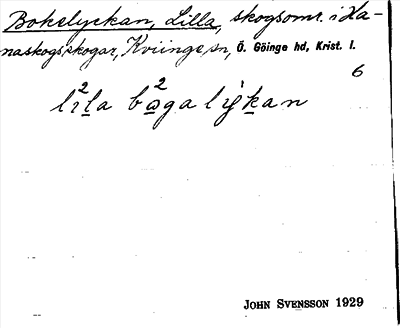 Bokelyckan, Lilla, skogsomr. i Ha-
naskogs skogar, Kviinge sn, Ö. Göinge hd, Krist. l.
6
JOHN SVENSSON 1929